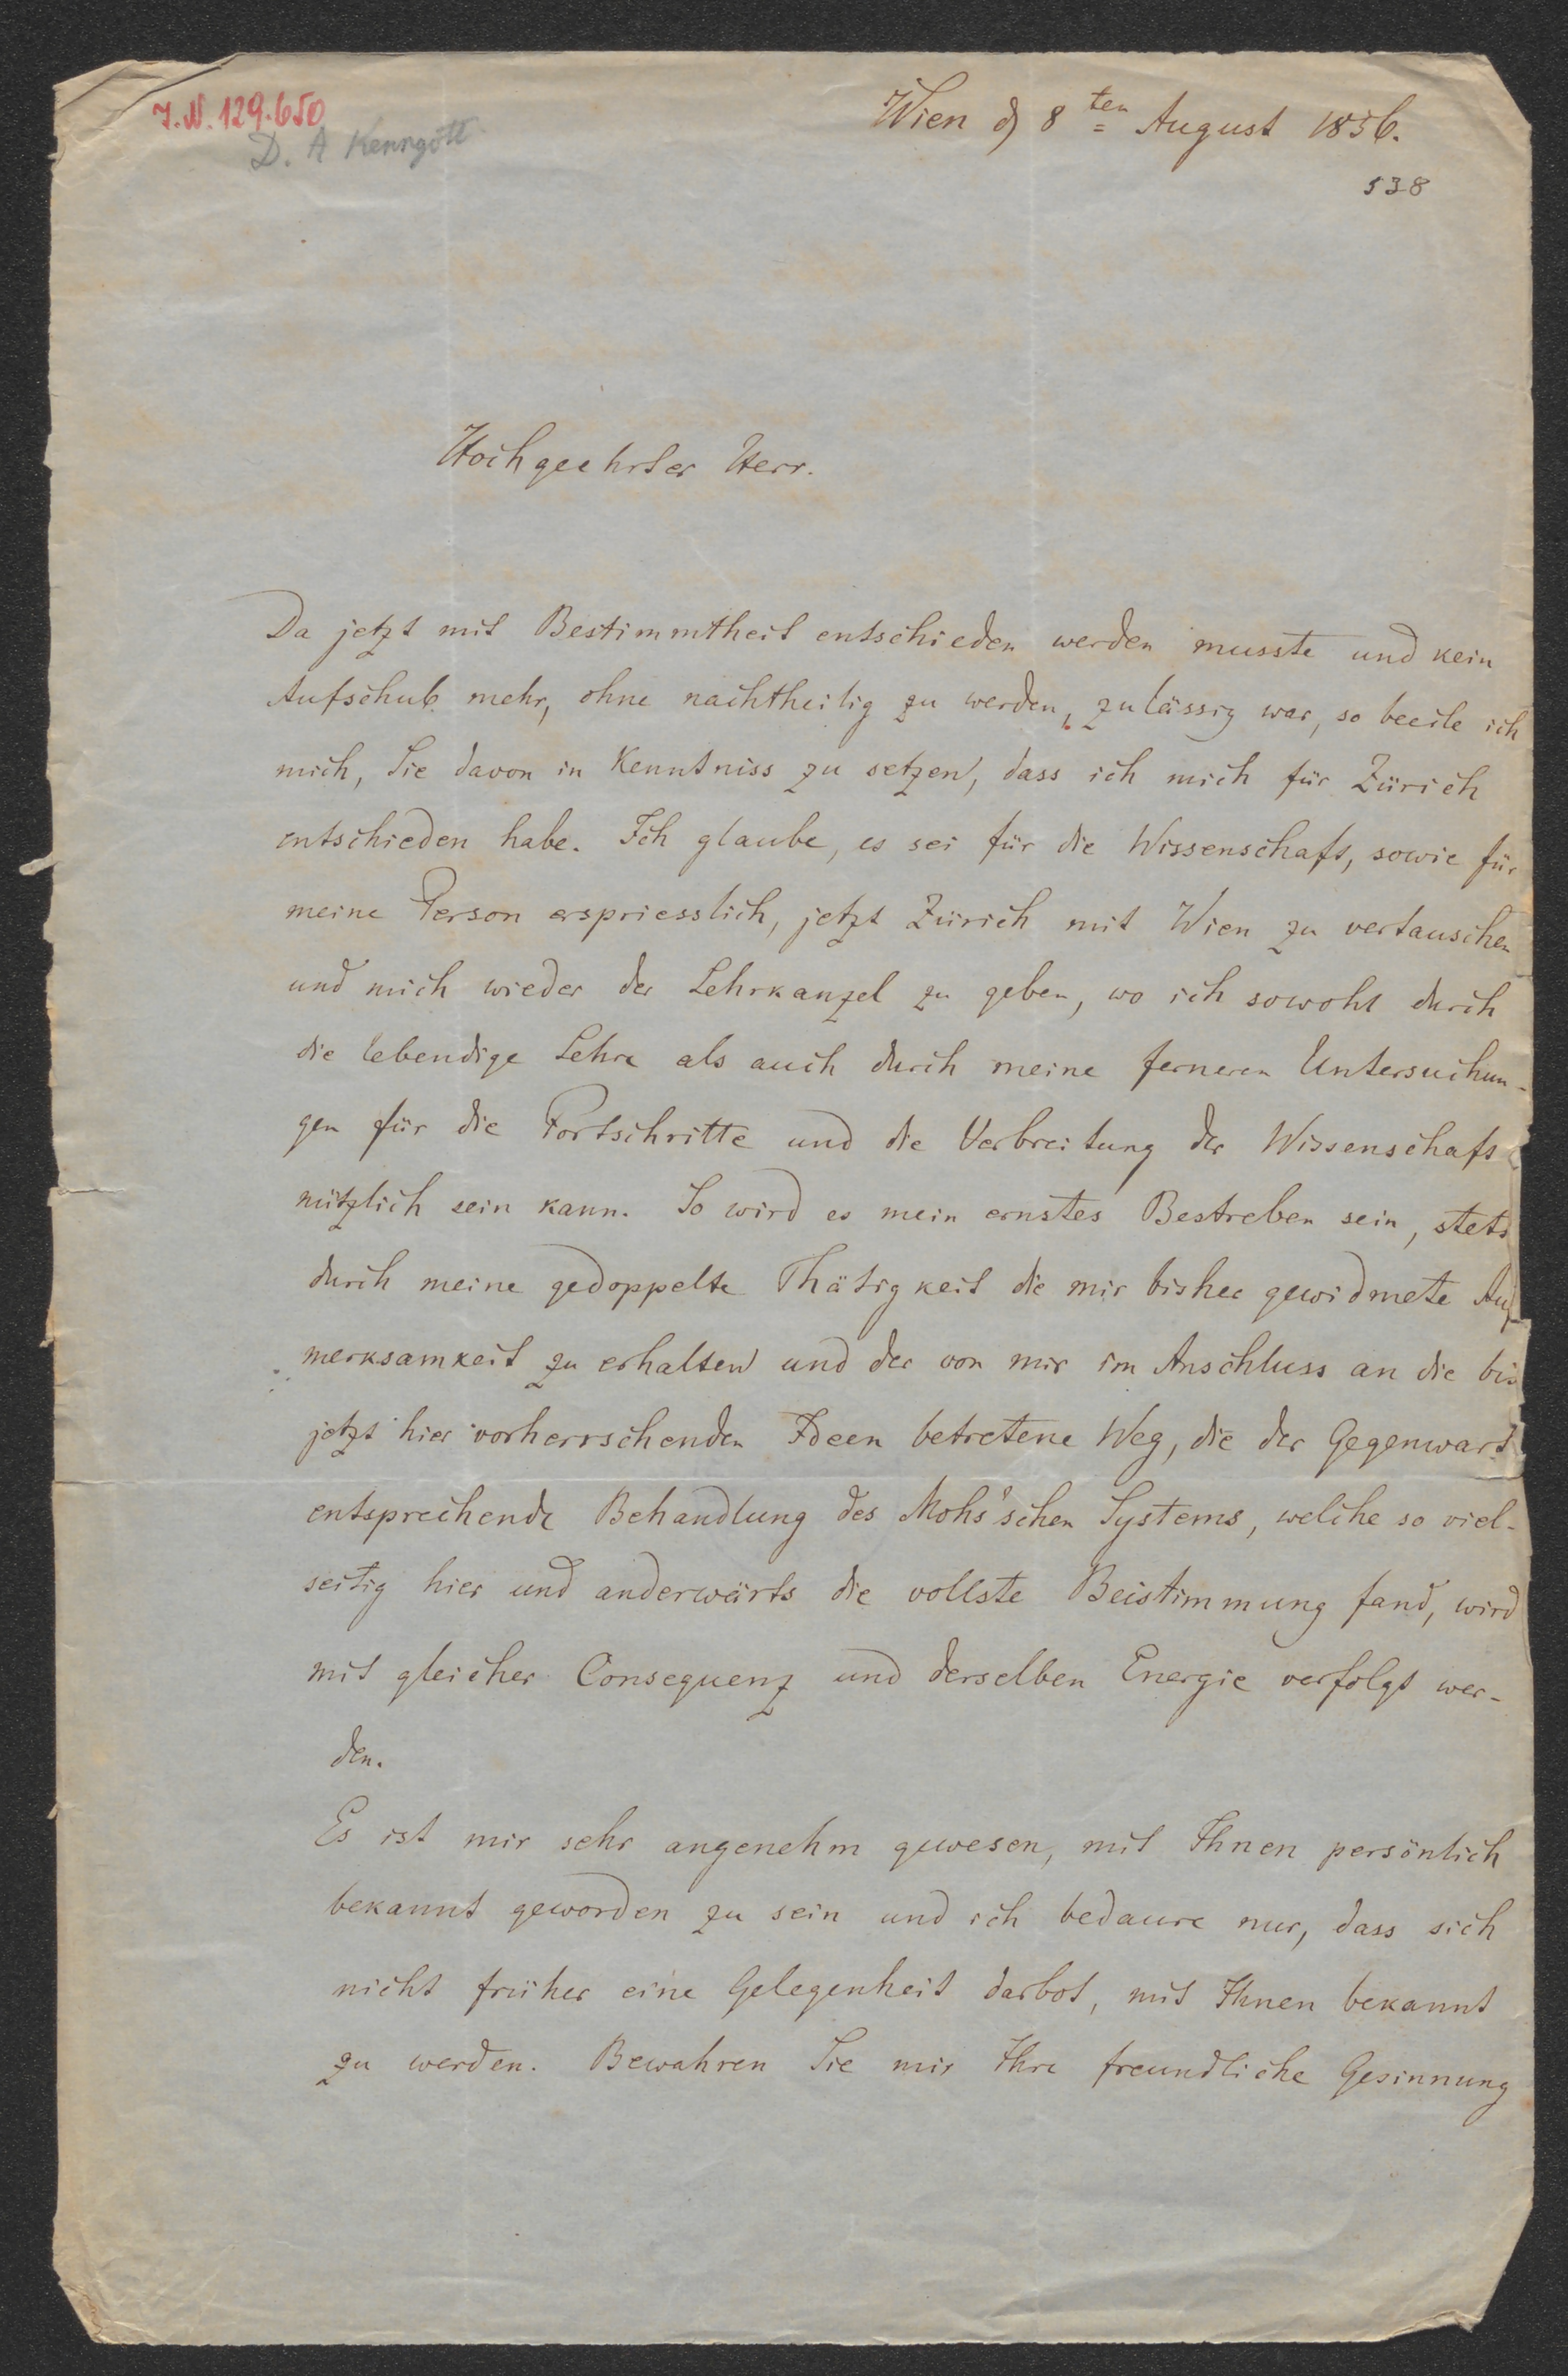 J.N. 129.650
D. A Kenngott
Wien d 8ten August 1856.
538
Hochgeehrter Herr.
Da jetzt mit Bestimmtheit entschieden werden musste und kein
Aufschub mehr, ohne nachtheilig zu werden, zulässig war, so beeile ich
mich, Sie davon in Kenntniss zu setzen, dass ich mich für Zürich
entschieden habe. Ich glaube, es sei für die Wissenschaft, sowie für
meine Person erspriesslich, jetzt Zürich mit Wien zu vertauschen
und mich wieder der Lehrkanzel zu geben, wo ich sowohl durch
die lebendige Lehre als auch durch meine ferneren Untersuchun-
gen für die Fortschritte und die Verbreitung der Wissenschaft
nützlich sein kann. So wird es mein ernstes Bestreben sein, stets
durch meine gedoppelte Thätigkeit die mir bisher gewidmete Auf-
merksamkeit zu erhalten und der von mir im Anschluss an die bis
jetzt hier vorherrschenden Ideen betretene Weg, die der Gegenwart
entsprechende Behandlung des Mohs'schen Systems, welche so viel-
seitig hier und anderwärts die vollste Beistimmung fand, wird
mit gleicher Consequenz und derselben Energie verfolgt wer-
den.
Es ist mir sehr angenehm gewesen, mit Ihnen persönlich
bekannt geworden zu sein und ich bedaure nur, dass sich
nicht früher eine Gelegenheit darbot, mit Ihnen bekannt
zu werden. Bewahren Sie mir Ihre freundliche Gesinnung